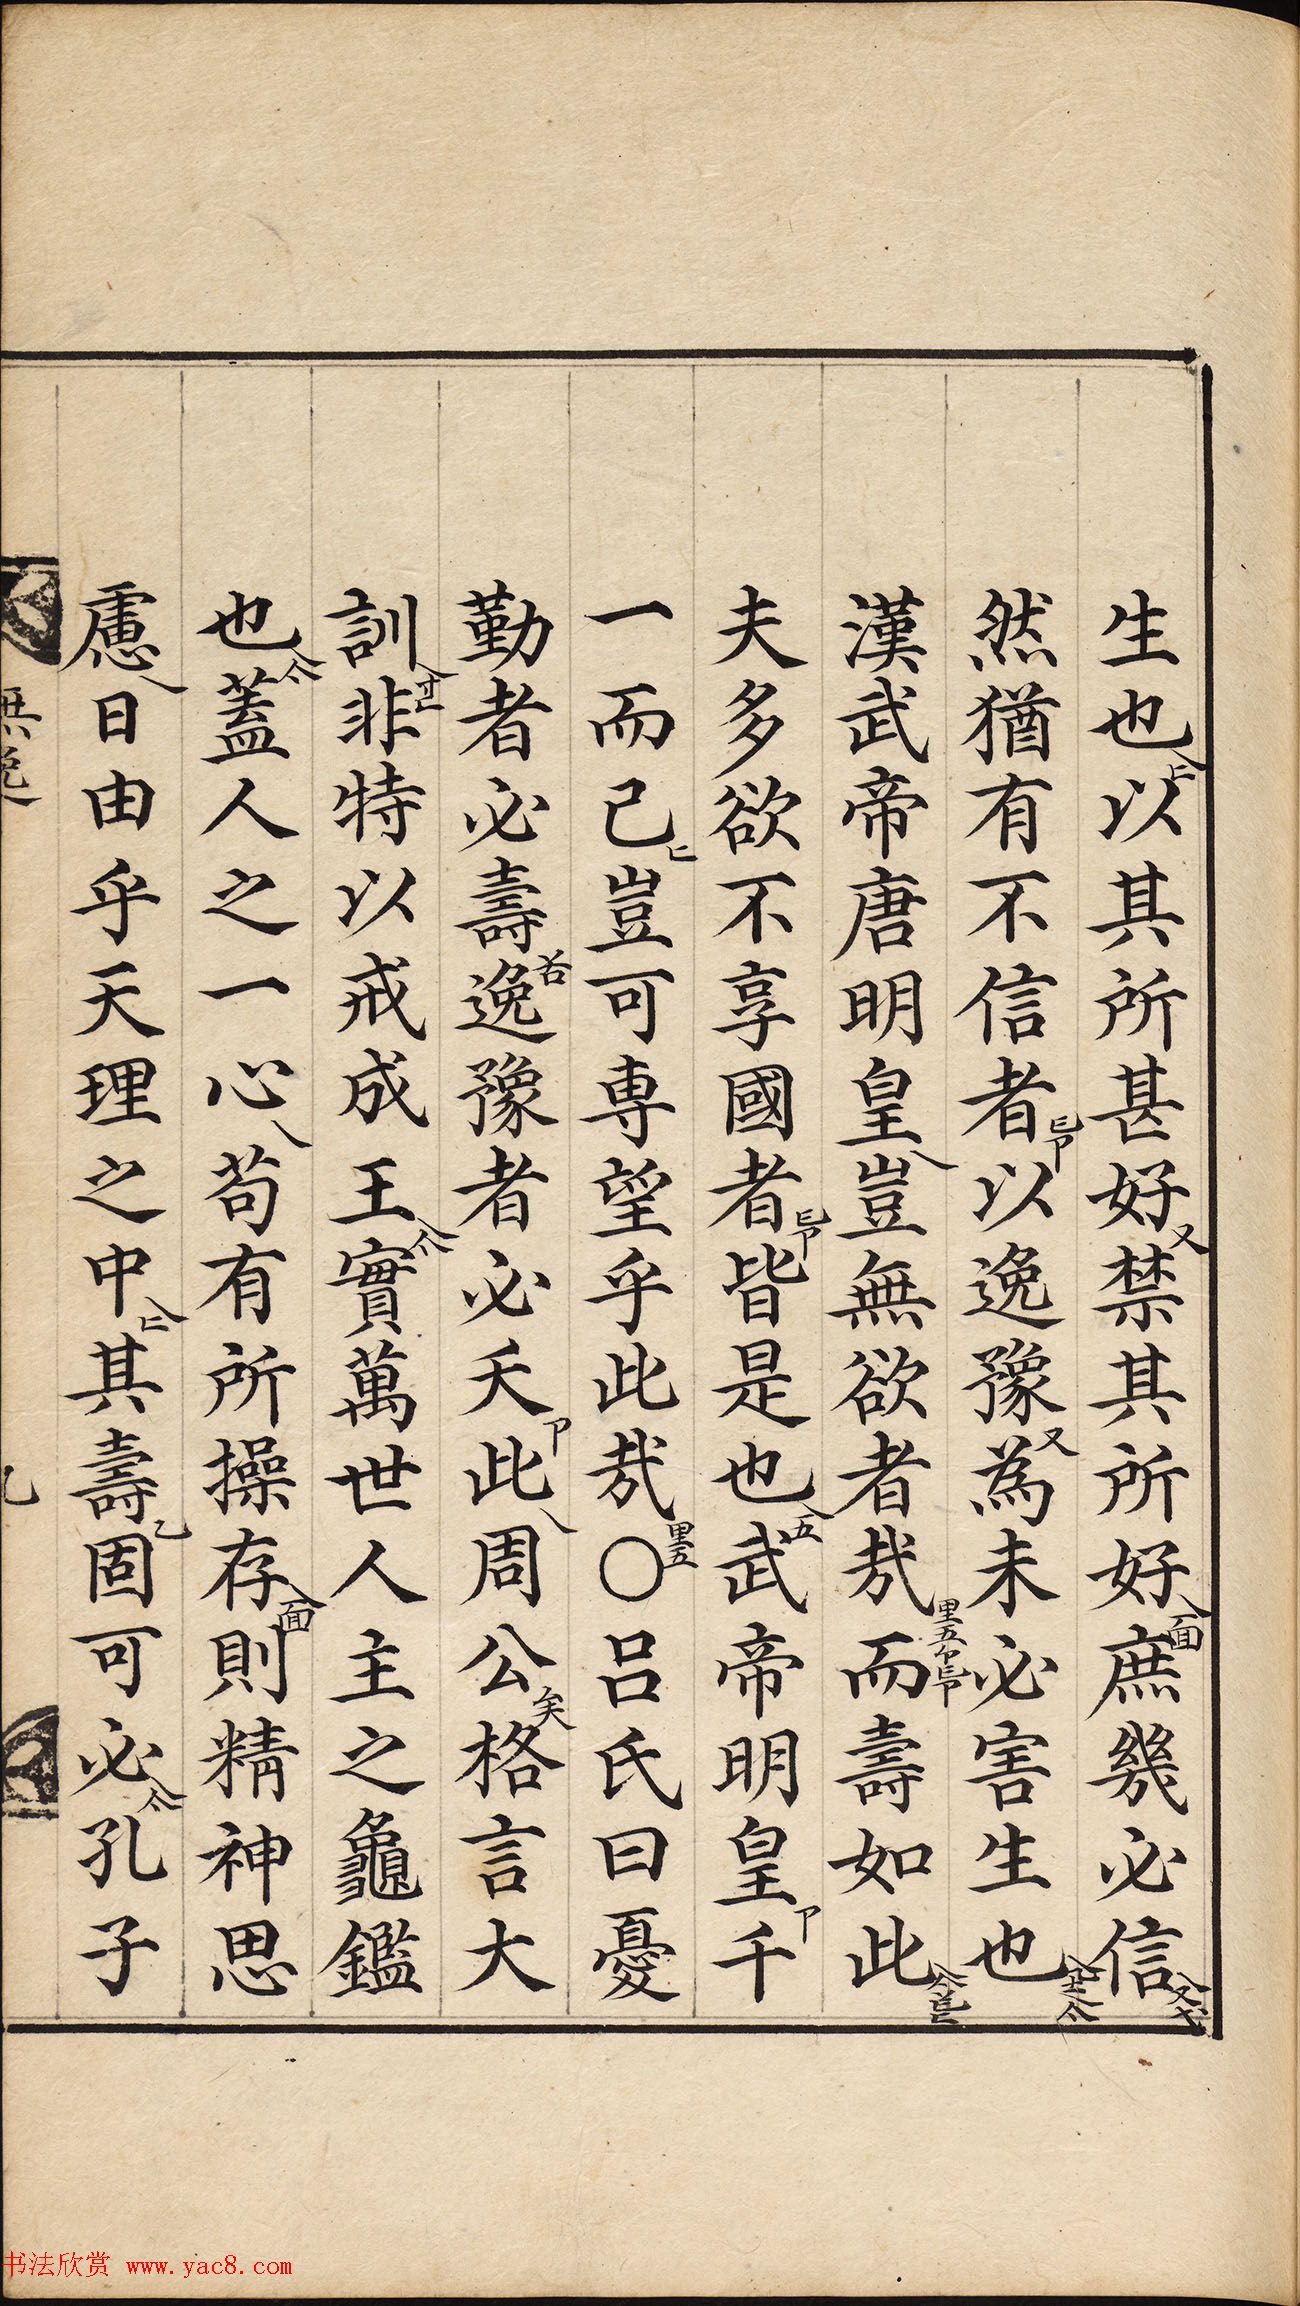 生也以其所甚好禁其所好庶幾必信
然猶有不信者以逸豫為未必害生也
漢武帝唐明皇豈無欲者哉而壽如此
夫多欲不享國者皆是也武帝明皇千
一而已豈可專望乎此哉〇呂氏曰憂
勤者必壽逸豫者必夭此周公格言大
訓非特以戒成王實萬世人主之龜鑑
也蓋人之一心苟有所操存則精神思
慮日由乎天理之中其壽固可必孔子
無逸
書法欣赏 www.yac8.com